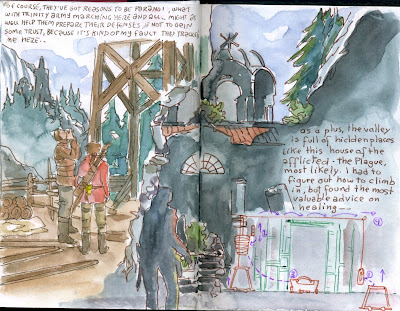 OF COURSE, THEY'VE GOT REASONS TO BE PARANOID, WHAT
WITH TRINITY ARMY MARCHING HERE AND ALL... MIGHT AS
WELL HELP THEM PREPARE THEIR DEFENSES, IF NOT TO GAIN
SOME TRUST, BECAUSE IT'S KIND OF MY FAULT THEY TRACKED
ME HERE...
as a plus, the valley
is full of hidden places
like this house of the
afflicted - the Plague,
most likely. I had to
figure out how to climb
in, but found the most
valuable advice on
healing --